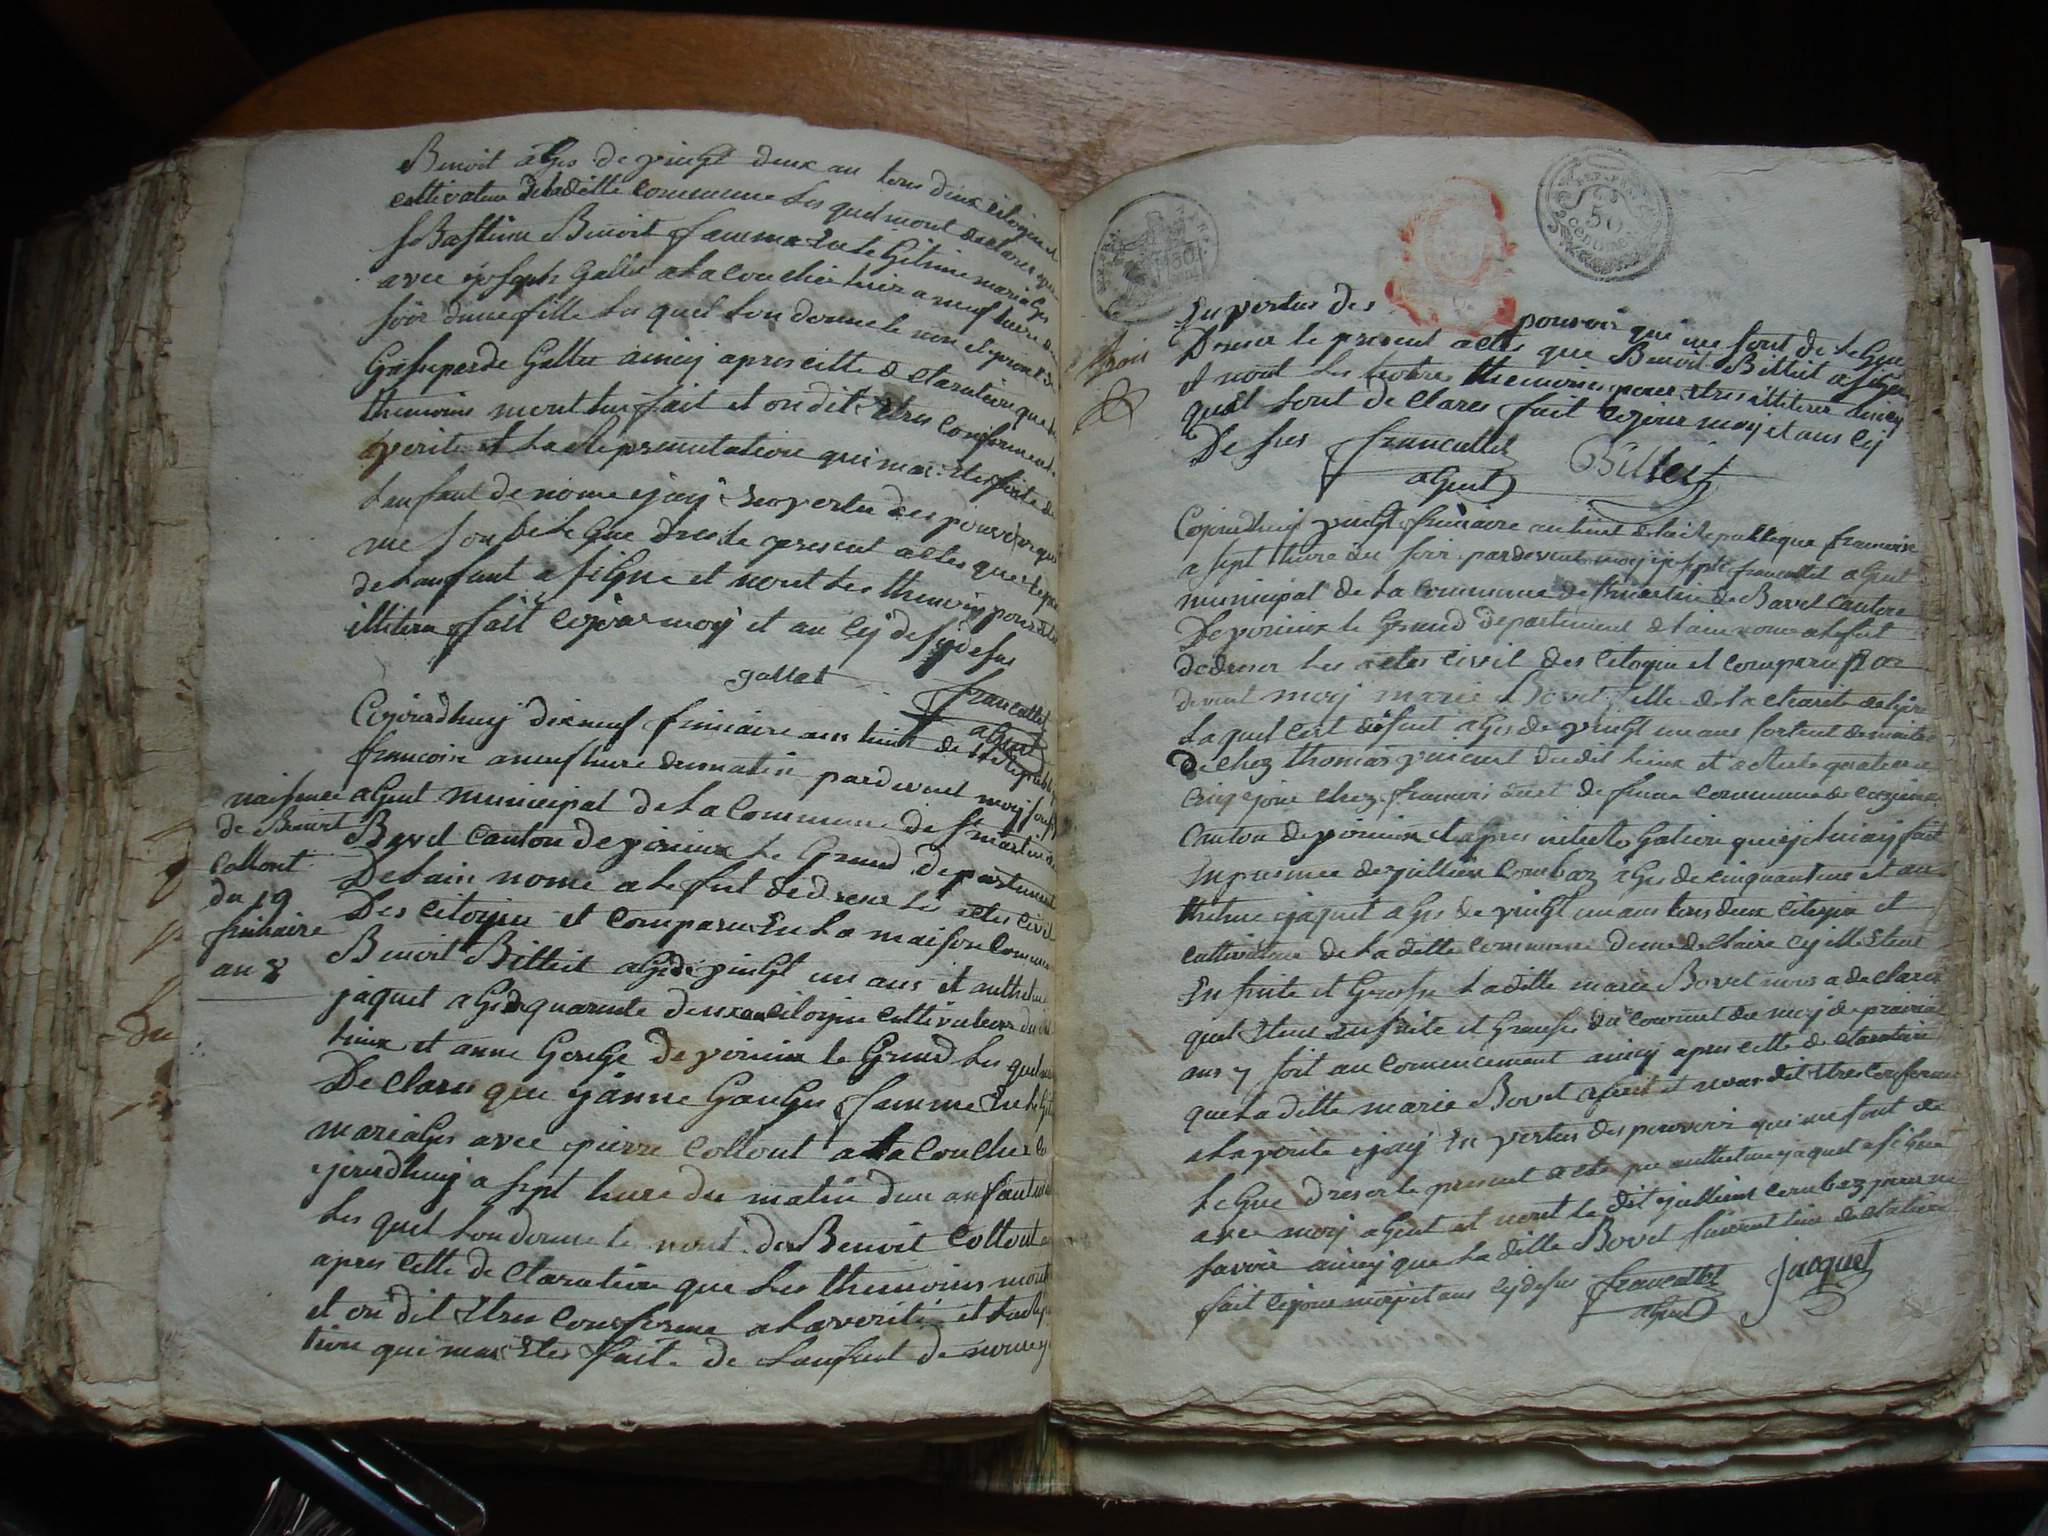 Benoit alges de vingt deux an tous deux citoyen et
cultivateur de laditte commune les quel mont declares que
sebastiene Benoit famme en le Gitime mariages
avec joseph Gallet a la couchée hier a neuf heure du
soir dune fille les quel lon donne le nom et prenom de
Gasseparde Gallet aincy apres cette declaration que les
themoins mont fait et on dit etres conforme
a verite et la Representation qui ma etes faite de
lanfant denome jay en vertu des pouvoir qui
me sont delegue dresse le present actes que le pere
de lanfant a signe et nont les themoins pour etre
illitere fait ce jour moy et an cy desus
gallet francallet
agent
Cejourdhuy dix neuf frimaire ans huit de la Republique
francoise a neuf heure du matin pardevent moy joseph
agent municipal de la commune de st martin de
Bavel canton de virieux le Grand departement
de Lain nome a lefut de dreser les actes civil
des citoyen et comparu en la maison commune
Benoit Billiet alges de vingt un ans et anthelme
jaquet alges de quarente deux an citoyen cultivateur dudit
lieux et anne Gorge de virieux le Grand les quel mont
declares que janne Gorges famme en le Gitime
mariages avec pierre Collont a la couchée ce
jourdhuy a sept heure du matin dun anfant
les quel lon donne le nom de Benoit Collont
apres cette declaration que les themoins mont
et on dit etres conforme a la verité et la Represen
tion qui ma etes faite de lanfant denome
naissance
de Benoit
Collont
du 19
frimaire
an 8
REP. FRA.
50
CENTIMES
En vertus des pouvoir qui me sont delegue
Dreser le present actes que Benoit Billiet a signe
et nont les autres themoins pour etres illiterer aincy
quil lont declares fait ce jour moy et ans cy
desus francallet Billiet
agent
Cejourdhuy vingt frimaire an huit de la Republique francoise
a sept heure du soir pardevent moy joseph francallet agent
municipal de la commune de st martin de Bavel canton
De virieux le Grand departement de lain nome a lefut
de dreser les actes civil des citoyen et comparu par
devent moy marie Bovet fille de la charite de
laquel est defunt alges de vingt un ans sortent de maitre
de chez thomas vincent dudit lieux et actuele quatre a
cinq jour chez francois commune de
canton de virieux et apres interrogation que je luy fait
en presence de jullien Combaz alges de cinquante et an
thelme jaquet alges de vingt un ans tous deux citoyen et
cultivateur de la ditte commune
Enseinte et Grosse laditte marie Bovet nous a declares
quel etent enseinte et Grosse du courant du moy de prairial
ans 7 soit au comencement aincy apres cette declaration
que laditte marie Bovet a fait et nous dit etres conforme
a la verite jay en vertus des pouvoir qui me sont de
legue dreser le present acte que anthelme jaquet a signe
avec moy agent et nont le dit jullien Combaz pour ne
savoir aincy que la ditte Bovet suivent leur declaration
fait ce jour moy et ans cy desus francallet jacquet
agent